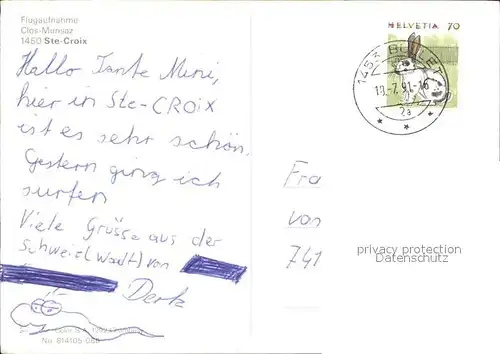 Flugaufnahme
Clos-Munsaz
1450 Ste-Croix
Hallo Tante Mimi,
hier in Ste-CROIX
ist es sehr schön.
Gestern ging ich
surfen
Viele Grüsse aus der
Schweiz (Wadt) von
Derk
No 814105 086
HELVETIA 70
1453 BULLET
2a
Fra
von
741
privacy protection
Datenschutz